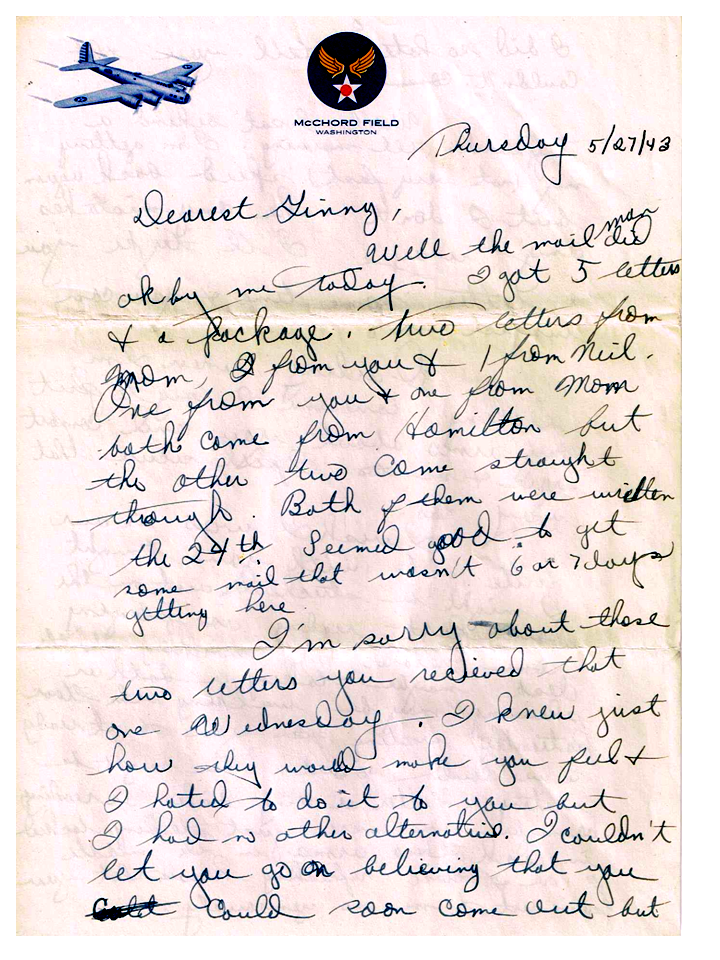 McCHORD FIELD
WASHINGTON
Thursday 5/27/43
Dearest Ginny,
Well the mail man did
ok by me today. I got 5 letters
& a package. Two letters from
Mom, 2 from you & 1 from Neil.
One from you & one from Mom
both come from Hamilton but
the other two come straight
through. Both of them were written
the 24th. Seemed good to get
some mail that wasn't 6 or 7 days
getting here.
I'm sorry about those
two letters you recieved that
one Wednesday. I knew just
how they would make you feel &
I hated to do it to you but
I had no other alternative. I couldn't
let you go on believing that you
could soon come out but